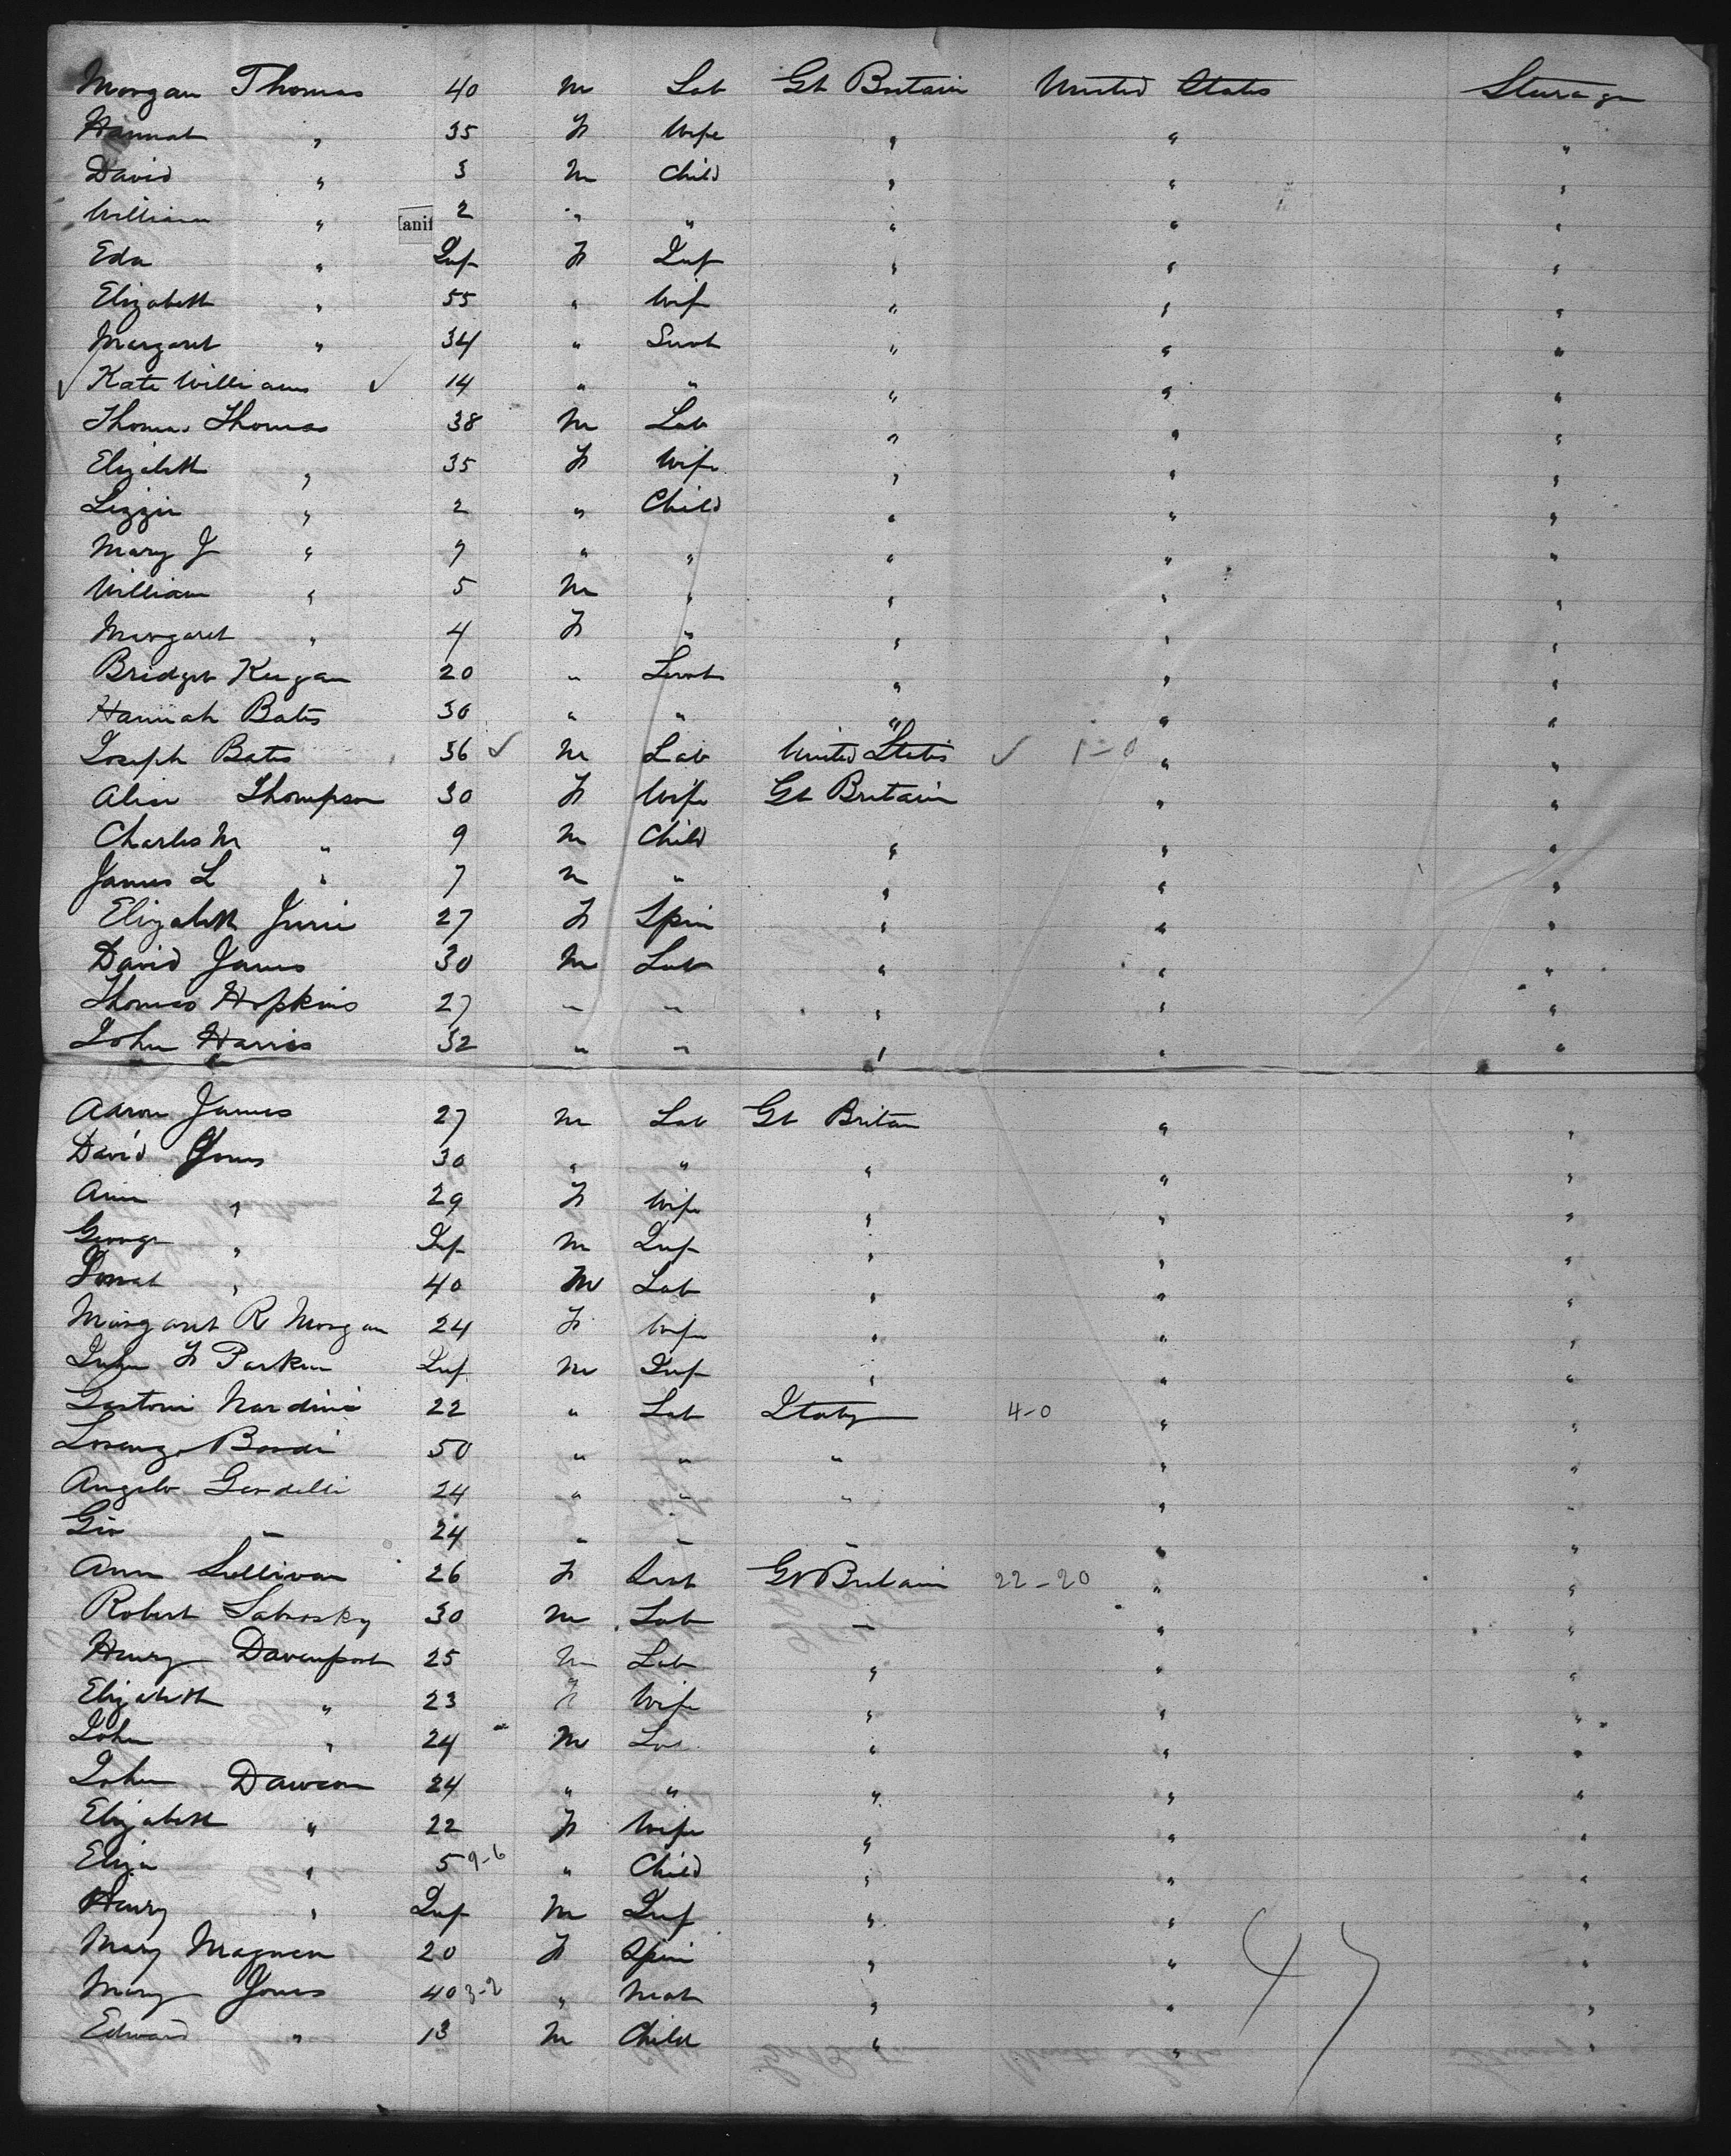 Morgan Thomas 40 m Lab Gt Britain United States Steerage
Hannah " 35 F Wife " " "
David " 3 m Child " " "
William " 2 " " " " "
Eda " Inf F Inf " " "
Elizabeth " 55 " Wife " " "
Margaret " 34 " Servt " " "
✓ Kate Williams ✓ 14 " " " " "
Thomas Thomas 38 m Lab " " "
Elizabeth " 35 F Wife " " "
Lizzie " 2 " Child " " "
Mary J " 7 " " " " "
William " 5 m " " " "
Margaret " 4 F " " " "
Bridget Keegan 20 " Servt " " "
Hannah Bates 30 " " " " "
Joseph Bates 36 ✓ m Lab United States ✓ 1-0 " "
Alice Thompson 30 F Wife Gt Britain " "
Charles M " 9 m Child " " "
James L " 7 m " " " "
Elizabeth 27 F Spin " " "
David James 30 m Lab " " "
Thomas Hopkins 27 " " " " "
John Harris 32 " " " " "
Aaron James 27 m Lab Gt Britain " "
David Jones 30 " " " " "
Ann " 29 F Wife " " "
George " Inf m Inf " " "
" 40 M Lab " " "
Margaret R Morgan 24 F Wife " " "
John F Inf m Inf " " "
Nardini 22 " Lab Italy 4-0 " "
Lorenzo 50 " " " " "
Angelo 24 " " " " "
Gio " 24 " " " " "
Ann Sullivan 26 F Servt Gt Britain 22-20 " "
Robert 30 m Lab " " "
Henry Davenport 25 m Lab " " "
Elizabeth " 23 F Wife " " "
John " 24 m Lab " " "
John Dawson 24 " " " " "
Elizabeth " 22 F Wife " " "
Eliza " 5 9-6 " Child " " "
Henry " Inf m Inf " " "
Mary 20 F Spin " " "
Mary Jones 40 3-2 " " " "
Edward " 13 m Child " " "
47